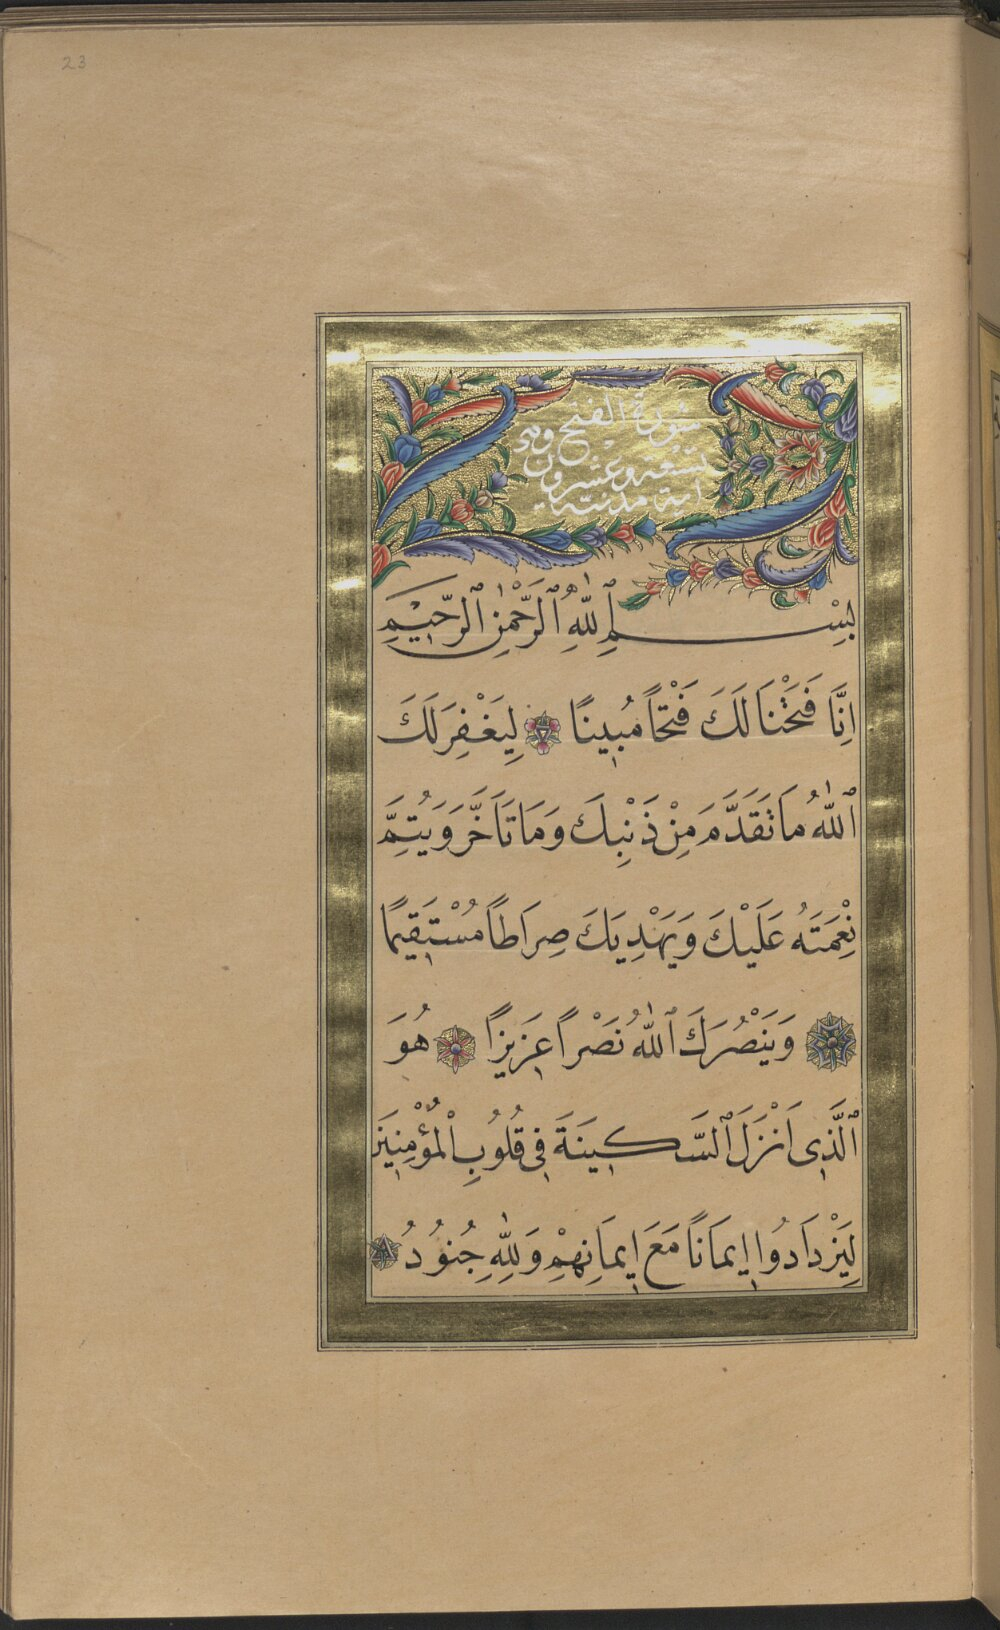 23
سورة الفتح وهي
تسعة وعشرون
اية مدنية
بِسْمِ ٱللّٰهِ ٱلرَّحْمٰنِ ٱلرَّحِيْمِ
اِنَّا فَتَحْنَا لَكَ فَتْحًا مُبِينًا لِيَغْفِرَ لَكَ
ٱللّٰهُ مَا تَقَدَّمَ مِنْ ذَنْبِكَ وَمَا تَاَخَّرَ وَيُتِمَّ
نِعْمَتَهُ عَلَيْكَ وَيَهْدِيَكَ صِرَاطًا مُسْتَقِيمًا
وَيَنْصُرَكَ ٱللّٰهُ نَصْرًا عَزِيزًا هُوَ
ٱلَّذِى اَنْزَلَ ٱلسَّكِينَةَ فِى قُلُوبِ ٱلْمُؤْمِنِينَ
لِيَزْدَادُوا اِيمَانًا مَعَ اِيمَانِهِمْ وَلِلّٰهِ جُنُودُ